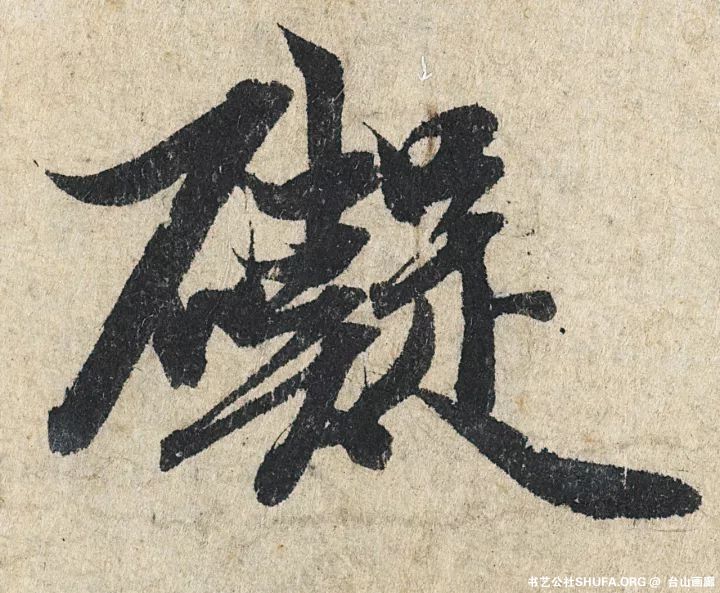 礙
书艺公社SHUFA.ORG @ 台山画廊